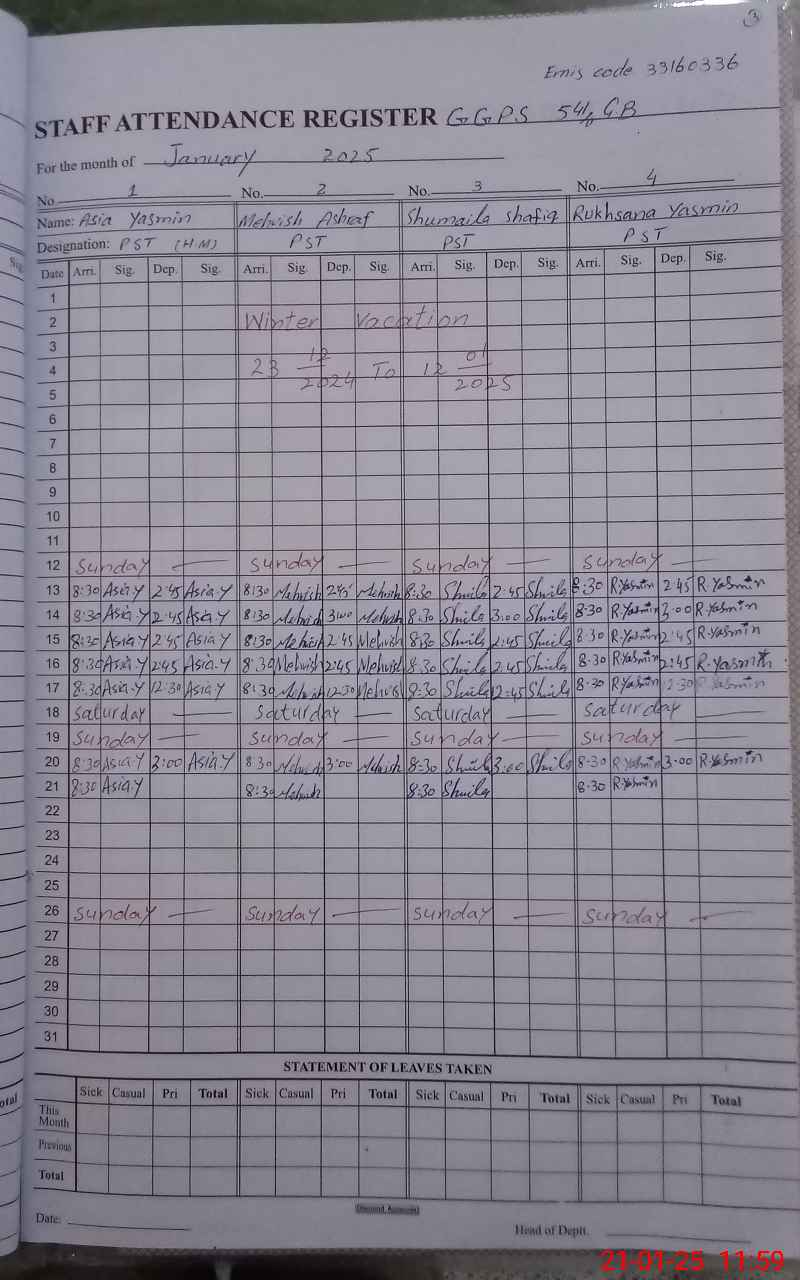 3
Emis code 33160336
STAFF ATTENDANCE REGISTER G.G.P.S 541/GB
For the month of January 2025
No. 1 No. 2 No. 3 No. 4
Name: Asia Yasmin Mehvish Ashraf Shumaila shafiq Rukhsana Yasmin
Designation: PST (H.M) PST PST PST
Date Arri. Sig. Dep. Sig. Arri. Sig. Dep. Sig. Arri. Sig. Dep. Sig. Arri. Sig. Dep. Sig.
1
2 Winter Vacation
3
4 23 12/2024 To 12 01/2025
5
6
7
8
9
10
11
12 Sunday — Sunday — Sunday — Sunday —
13 8:30 Asia.Y 2:45 Asia.Y 8:30 Mehvish 2:45 Mehvish 8:30 Shuila 2:45 Shuila 8:30 R.Yasmin 2:45 R.Yasmin
14 8:30 Asia.Y 2:45 Asia.Y 8:30 Mehvish 3:00 Mehvish 8:30 Shuila 3:00 Shuila 8:30 R.Yasmin 3:00 R.Yasmin
15 8:30 Asia.Y 2:45 Asia.Y 8:30 Mehvish 2:45 Mehvish 8:30 Shuila 2:45 Shuila 8:30 R.Yasmin 2:45 R.Yasmin
16 8:30 Asia.Y 2:45 Asia.Y 8:30 Mehvish 2:45 Mehvish 8:30 Shuila 2:45 Shuila 8:30 R.Yasmin 2:45 R.Yasmin
17 8:30 Asia.Y 12:30 Asia.Y 8:30 Mehvish 12:30 Mehvish 8:30 Shuila 12:45 Shuila 8:30 R.Yasmin 12:30 R.Yasmin
18 Saturday — Saturday — Saturday — Saturday —
19 Sunday — Sunday — Sunday — Sunday —
20 8:30 Asia.Y 3:00 Asia.Y 8:30 Mehvish 3:00 Mehvish 8:30 Shuila 3:00 Shuila 8:30 R.Yasmin 3:00 R.Yasmin
21 8:30 Asia.Y 8:30 Mehvish 8:30 Shuila 8:30 R.Yasmin
22
23
24
25
26 Sunday — Sunday — Sunday — Sunday —
27
28
29
30
31
STATEMENT OF LEAVES TAKEN
Sick Casual Pri Total Sick Casual Pri Total Sick Casual Pri Total Sick Casual Pri Total
This Month
Previous
Total
Date:
Head of Deptt.
21-01-25 11:59